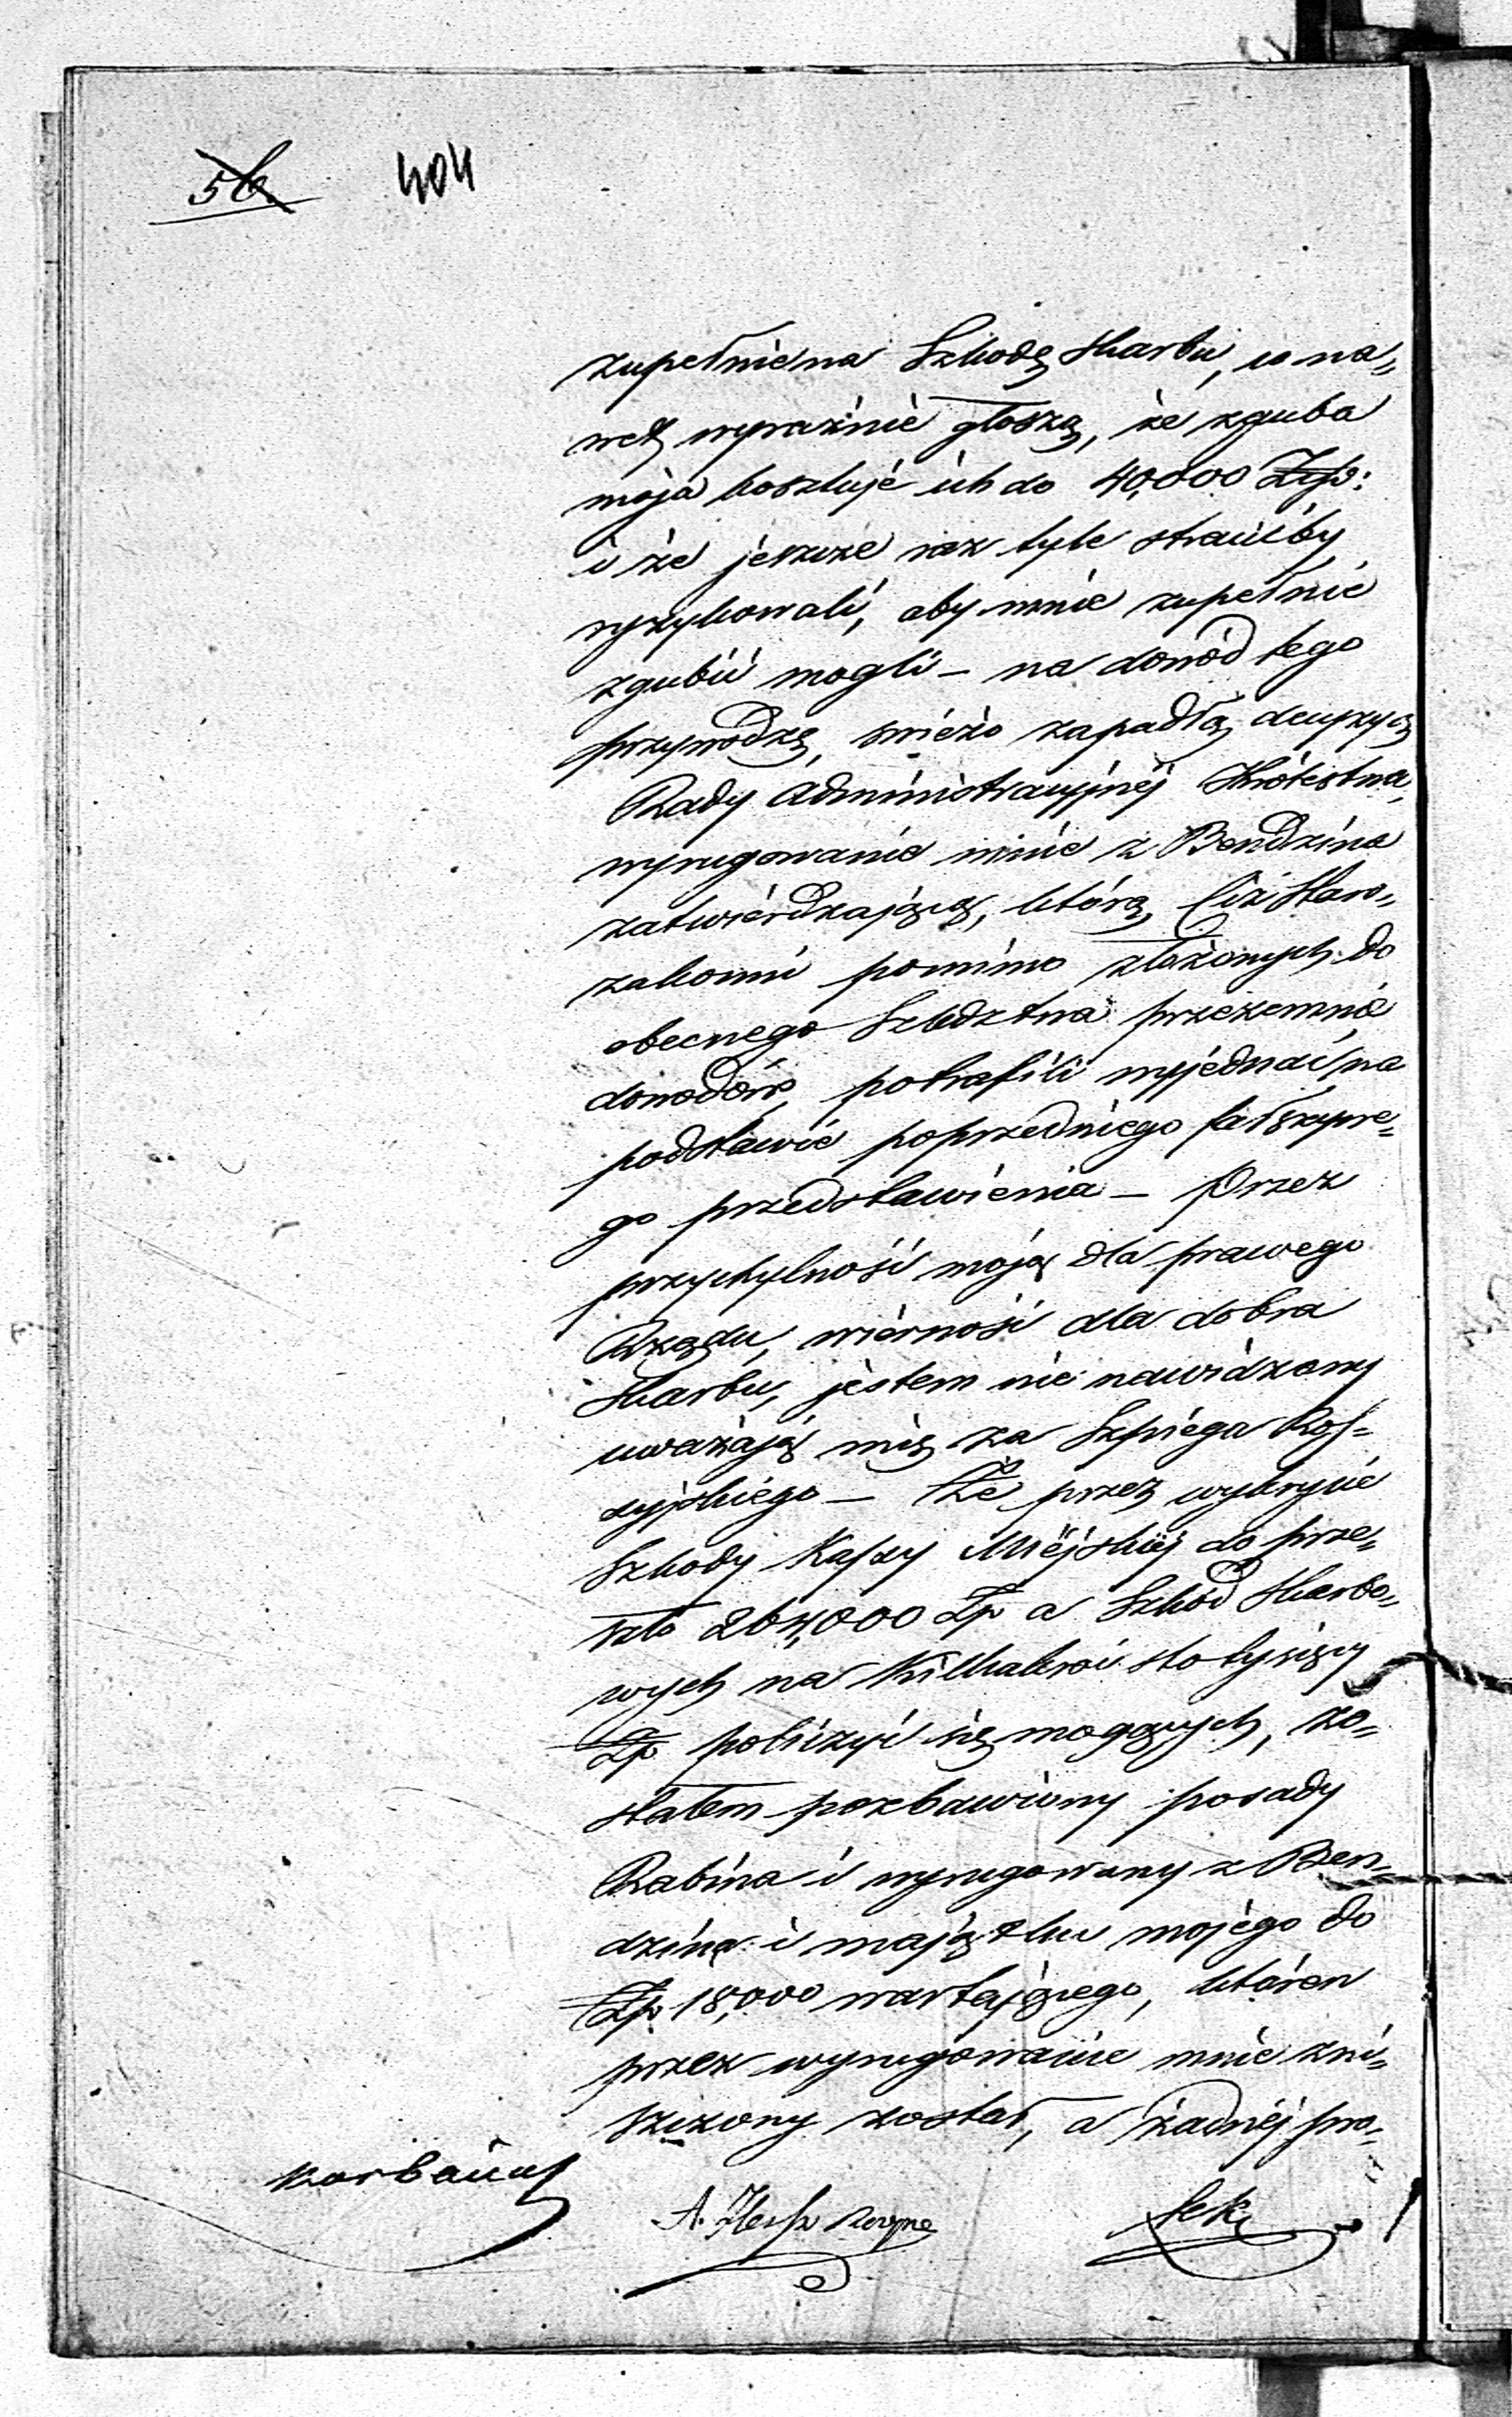 56 404
zupełnie na Szkodę Skarbu, co na„
wet wyraźnie głoszą, że zguba
moja kosztuje ich do 40,000 Złp:
i że jeszcze raz tyle stracićby
ryzykowali, aby mnie zupełnie
zgubić mogli – na dowód tego
przywodzę, świeżo zapadłą decyzyą
Rady Administracyjnéj Królestwa,
wyrugowanie mnie z Bendzina
zatwierdzającą, którą Ciż Staro„
zakonni pomimo złożonych do
obecnego Szledztwa przezemnie
dowodów, potrafili wyjednać na
podstawie poprzedniego fałszywe„
go przedstawienia – Przez
przychylność moją dla prawego
Rządu, wierność dla dobra
Skarbu, jestem nie nawidzony
uważają mię za Szpiega Ros„
syjskiego – Że przez wykrycie
Szkody Kassy Miéjskiéj do prze„
szło 264,000 Zp a Szkód Skarbo„
wych na Kilkakroć sto tysięcy
Zp policzyć się mogących, zo„
stałem pozbawiony posady
Rabina i wyrugowany z Ben„
dzina i majątku mojego do
Zp 18,000 wartającego, któren
przez wyrugowanie mnie zni„
szczony został, a żadnéj pra„
A. Hersz